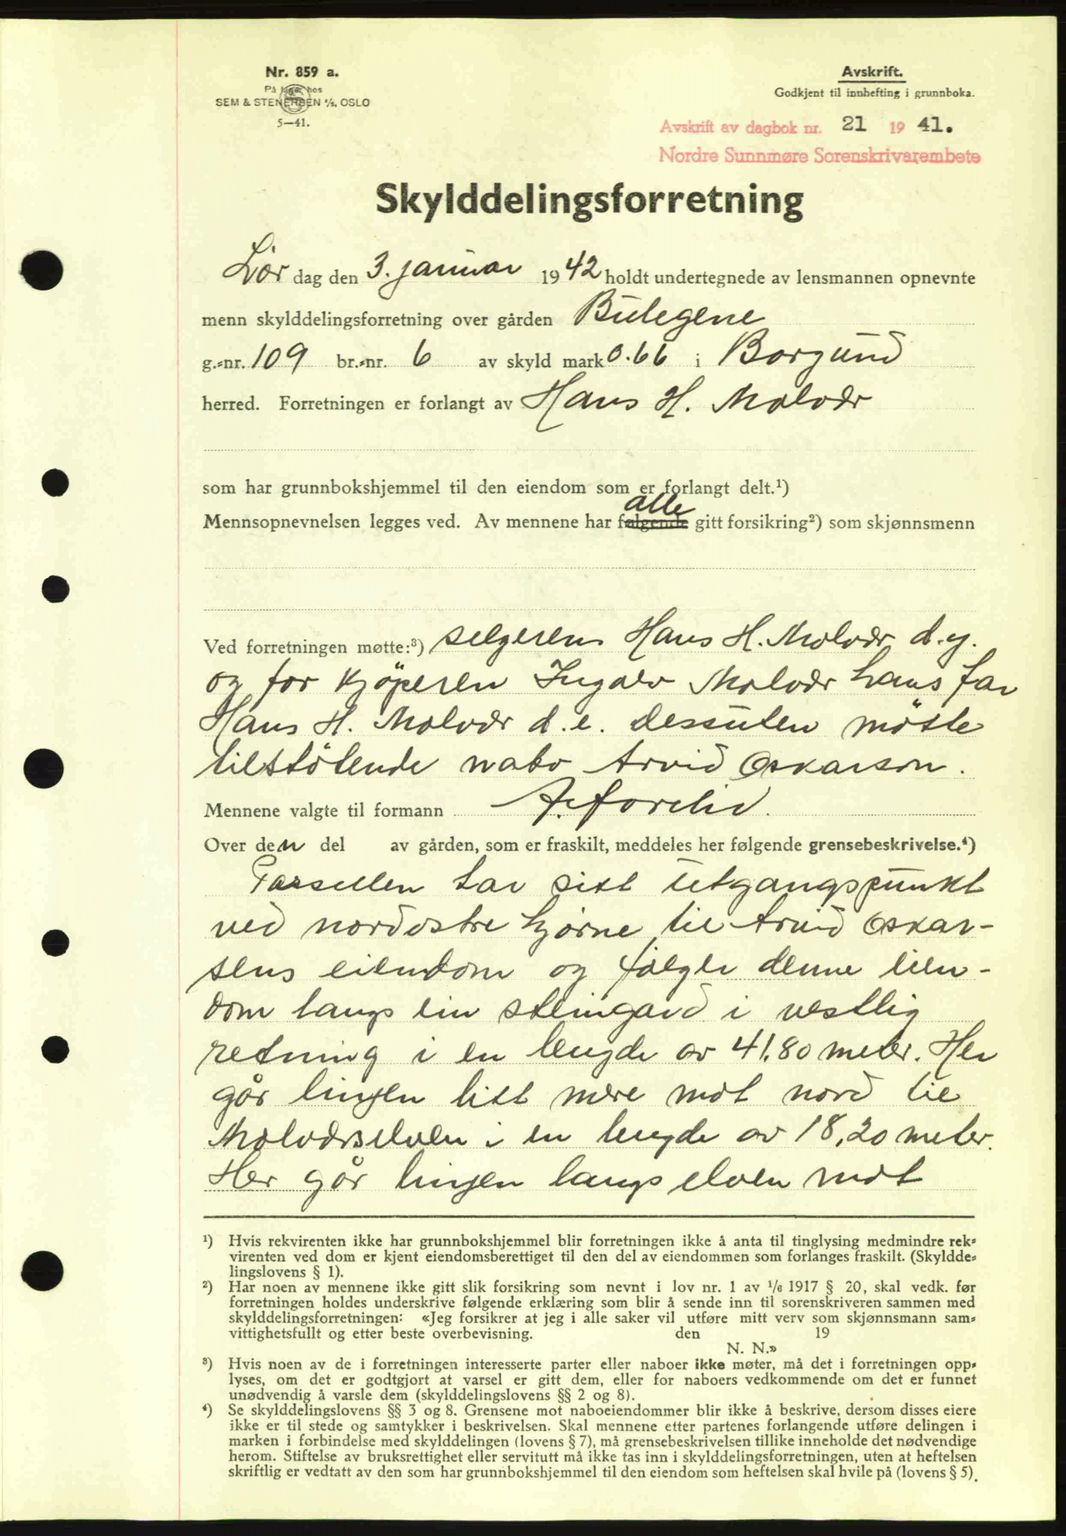 Nr. 859 a.
På lager hos
SEM & STENERSEN A/S, OSLO
5—41.
Avskrift.
Godkjent til innhefting i grunnboka.
Avskrift av dagbok nr. 21 19 41.
Nordre Sunnmøre Sorenskrivarembete
Skylddelingsforretning
Lør dag den 3. januar 1942 holdt undertegnede av lensmannen opnevnte
menn skylddelingsforretning over gården Bulegene
g.-nr. 109 br.-nr. 6 av skyld mark 0.66 i Borgund
herred. Forretningen er forlangt av Hans H. Molvær
som har grunnbokshjemmel til den eiendom som er forlangt delt.¹)
alle
Mennsopnevnelsen legges ved. Av mennene har følgende gitt forsikring²) som skjønnsmenn
Ved forretningen møtte:³) selgeren Hans H. Molvær d.y.
og for kjøperen Ingalv Molvær hans far
Hans H. Molvær d.e. Dessuten møtte
tilstøtende nabo Arvid Oskarson.
Mennene valgte til formann
Over den del av gården, som er fraskilt, meddeles her følgende grensebeskrivelse.⁴)
Parsellen har sitt utgangspunkt
ved nordøstre hjørne til Arvid Oskar-
sens eiendom og følger denne eien-
dom langs ein steingard i vestlig
retning i en lengde av 41,80 meter. Her
går linjen litt mere mot nord til
Molværselven i en lengde av 18,20 meter.
Her går linjen langs elven mot
¹) Hvis rekvirenten ikke har grunnbokshjemmel blir forretningen ikke å anta til tinglysing medmindre rek-
virenten ved dom er kjent eiendomsberettiget til den del av eiendommen som forlanges fraskilt. (Skyldde-
lingslovens § 1).
²) Har noen av mennene ikke gitt slik forsikring som nevnt i lov nr. 1 av 1/6 1917 § 20, skal vedk. før
forretningen holdes underskrive følgende erklæring som blir å sende inn til sorenskriveren sammen med
skylddelingsforretningen: «Jeg forsikrer at jeg i alle saker vil utføre mitt verv som skjønnsmann sam-
vittighetsfullt og etter beste overbevisning. den 19
N. N.»
³) Hvis noen av de i forretningen interesserte parter eller naboer ikke møter, må det i forretningen opp-
lyses, om det er godtgjort at varsel er gitt dem, eller for naboers vedkommende om det er funnet
unødvendig å varsle dem (skylddelingslovens §§ 2 og 8).
⁴) Se skylddelingslovens §§ 3 og 8. Grensene mot naboeiendommer blir ikke å beskrive, dersom disses eiere
ikke er til stede og samtykker i beskrivelsen. Skal mennene etter partenes forlangende utføre delingen i
marken i forbindelse med skylddelingen (lovens § 7), må grensebeskrivelsen tillike inneholde det nødvendige
herom. Stiftelse av bruksrettighet eller servitutt må ikke tas inn i skylddelingsforretningen, uten at heftelsen
skriftlig er vedtatt av den som har grunnbokshjemmel til den eiendom som heftelsen skal hvile på (lovens § 5).